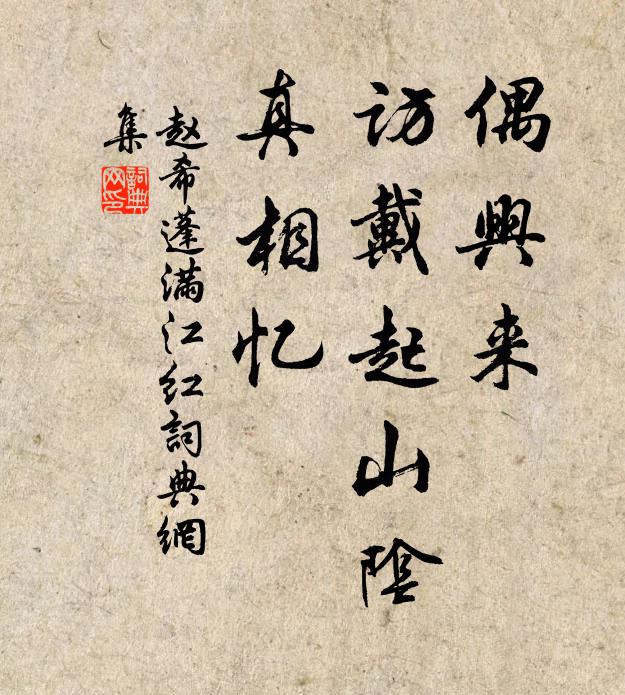 偶興来
访戴起山陰
真相忆
赵希蓬满江红詞典網
集
詞典
网印